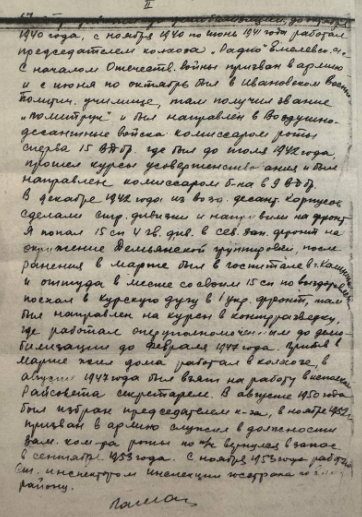 II
1940 года, с ноября 1940 по июнь 1941 года работал
председателем колхоза "Радио"
с началом Отечеств. войны призван в армию
и с июня по октябрь был в Ивановском
политич. училище, там получил звание
"политрук" и был направлен в Воздушно-
десантные войска комиссаром роты
сперва 15 ВДбр. где был до июля 1942 года,
прошел курсы усовершенствования и был
направлен комиссаром б-на в 9 ВДбр.
В декабре 1942 года из возд. десант. корпусов
сделали стр. дивизии и направили на фронт
Я попал 15 сп 4 гв. див. в сев. зап. фронт на
окружение Демьянской группировки, после
ранения в марте был в госпитале в г.
и оттуда в месте со своим 15 сп по выздоров.
поехал в курскую дугу в 1 укр. фронт, там
был направлен на курсы в контрразведку,
где работал оперуполномоченным до демо-
билизации до февраля 1947 года. Прибыв в
марте жил дома работал в колхозе, в
августе 1947 года был взят на работу в
Райсовета секретарем. В августе 1950 года
был избран председателем к-за, в ноябре 1952
призван в армию служил в должности
зам. ком-ра роты по п/ч вернулся в запас
в сентябре 1953 года. С ноября 1953 года
ст. инспектором инспекции госстраха по
району.